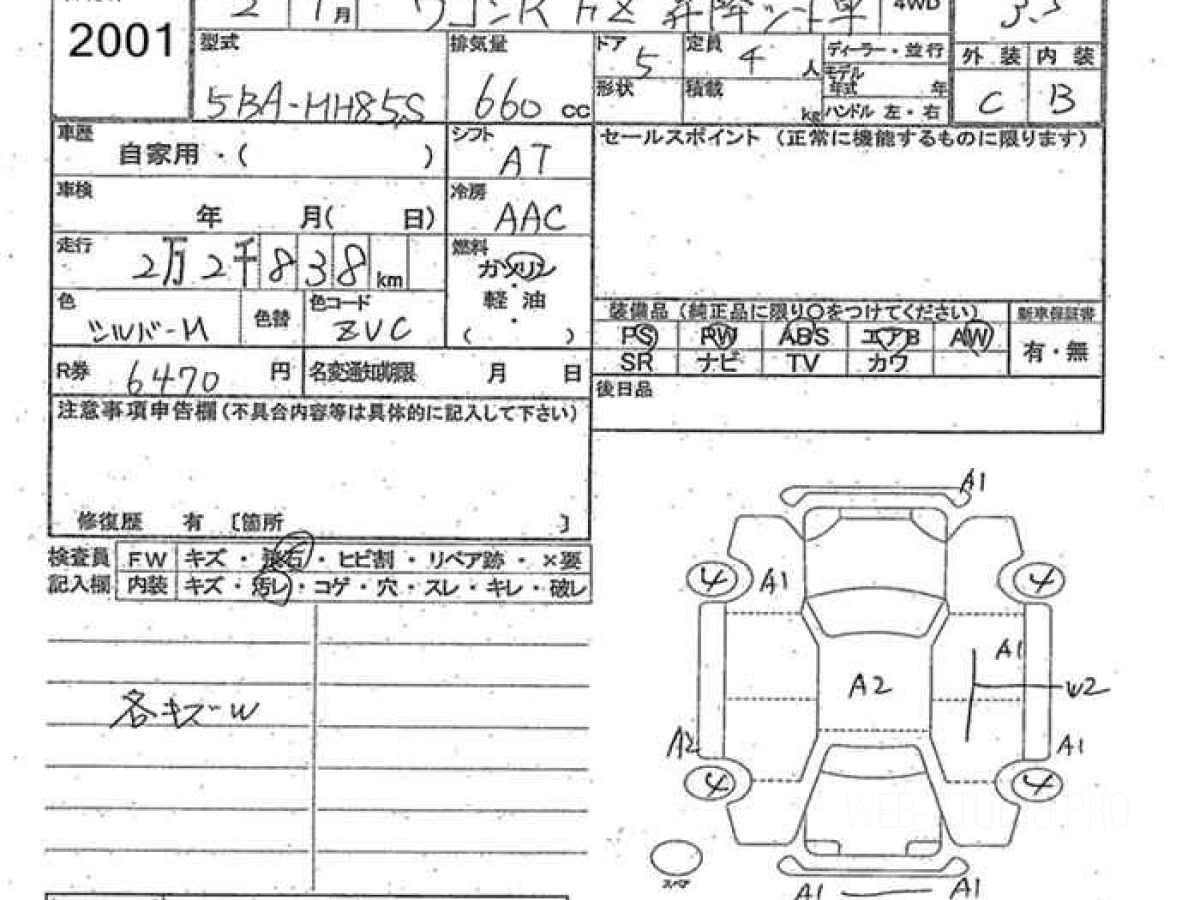 2001
2 月 ワゴンR FZ 昇降シート車 4WD
3.5
型式 5BA-MH85S
排気量 660 cc
ドア 5
定員 4 人
形状
積載 kg
ディーラー・並行
モデル年式 年
ハンドル 左・右
外装 内装
C B
車歴 自家用・( )
シフト AT
セールスポイント (正常に機能するものに限ります)
車検 年 月( 日)
冷房 AAC
走行 2万2千838km
燃料 ガソリン
・
軽油
・
( )
色 シルバーM
色替
色コード ZVC
装備品 (純正品に限り○をつけてください)
新車保証書
PS PW ABS エアB AW
有・無
SR ナビ TV カワ
R券 6470 円
名変通知期限 月 日
後日品
注意事項申告欄(不具合内容等は具体的に記入して下さい)
修復歴 有 〔箇所 〕
検査員記入欄
FW キズ・飛石・ヒビ割・リペア跡・×要
内装 キズ・汚レ・コゲ・穴・スレ・キレ・破レ
各キズW
A1
4 A1 4
A1
A2 W2
A2 A1
4 4
WEB-STUDIO.PRO
スペア
A1 A1